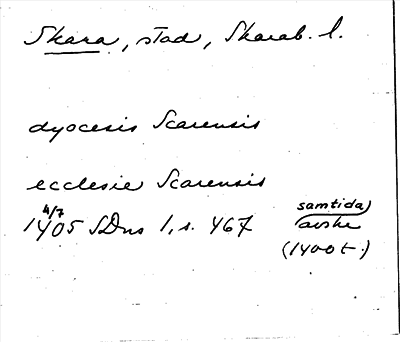 Skara, stad, Skarab. l.
dyocesis Scarensis
ecclesie Scarensis
4/7
1405 SDns 1, s. 467 samtida
avskr
(1400 t.)